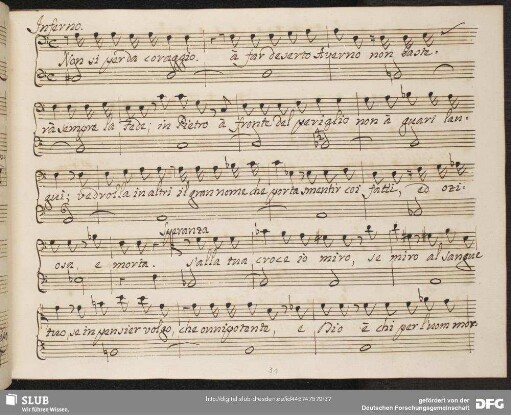 Inferno.
Non si perda coraggio. à far deserto Averno non baste-
rà sempre la Fede; in Pietro à fronte del periglio non à guari lan-
guì; vedrolla in altri il gran nome che porta smentir coi fatti, ed ozi-
Speranza
osa, e morta. S'alla tua croce io miro, se miro al Sangue
tuo, se in pensier volgo, che onnipotente, e Dio è chi per l'uom mor
SLUB
Wir führen Wissen.
gefördert von der
Deutschen Forschungsgemeinschaft
DFG